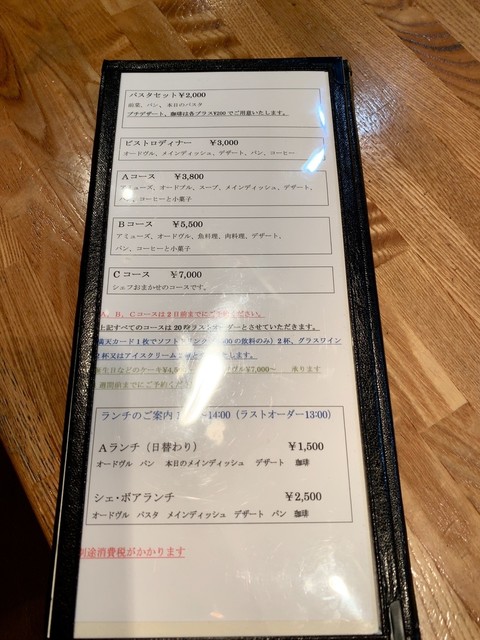 パスタセット ¥2,000
前菜、パン、本日のパスタ
プチデザート、珈琲は各プラス¥200でご用意いたします。
ビストロディナー ¥3,000
オードヴル、メインディッシュ、デザート、パン、コーヒー
Aコース ¥3,800
アミューズ、オードブル、スープ、メインディッシュ、デザート、
パン、コーヒーと小菓子
Bコース ¥5,500
アミューズ、オードヴル、魚料理、肉料理、デザート、
パン、コーヒーと小菓子
Cコース ¥7,000
シェフおまかせのコースです。
A、B、Cコースは2日前までにご予約ください。
上記すべてのコースは20時ラストオーダーとさせていただきます。
満天カード1枚でソフトドリンク の飲料のみ）2杯、グラスワイン
杯又はアイスクリーム たします。
誕生日などのケーキ ¥7,000～ 承ります
週間前までにご予約ください
ランチのご案内 ～14:00（ラストオーダー13:00）
Aランチ（日替わり） ¥1,500
オードヴル パン 本日のメインディッシュ デザート 珈琲
シェ・ボアランチ ¥2,500
オードヴル パスタ メインディッシュ デザート パン 珈琲
別途消費税がかかります